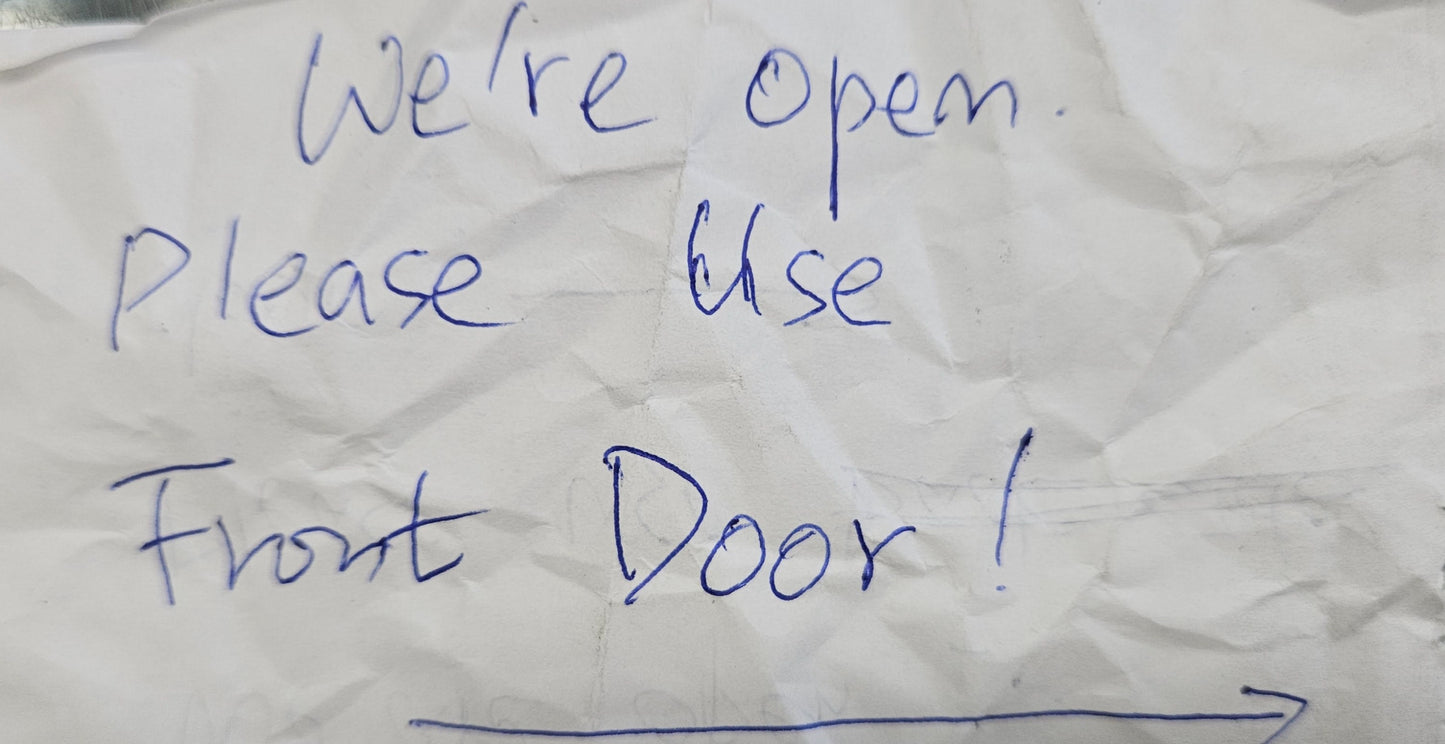 We're open.
Please Use
Front Door!